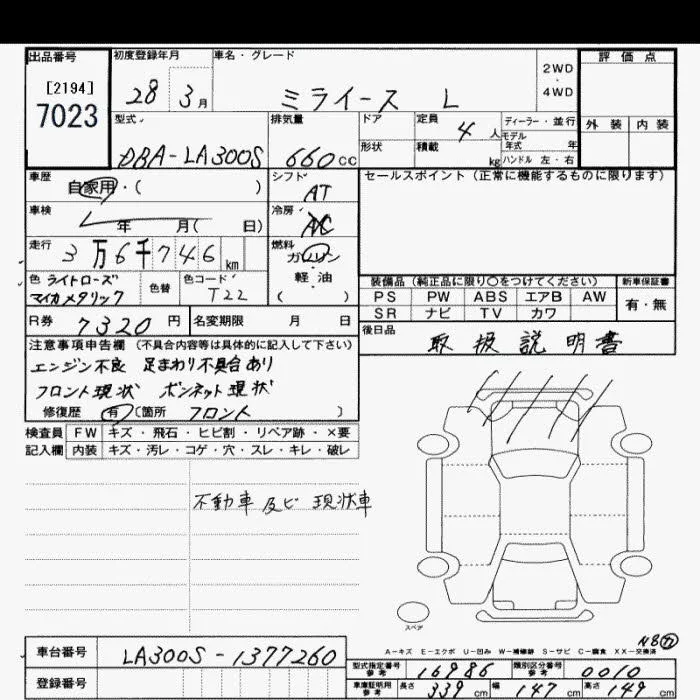 出品番号 初度登録年月 車名・グレード 評価点
[2194] 28 3月 ミライース L 2WD・4WD
7023
型式 排気量 ドア 定員 4人 ディーラー・並行 外装 内装
モデル年式 年
DBA-LA300S 660cc 形状 積載 kg ハンドル 左・右
車歴 自家用・( ) シフト AT セールスポイント(正常に機能するものに限ります)
車検 年 月( 日) 冷房 AC
走行 3万6千746km 燃料 ガソリン・軽油( )
色 ライトローズマイカメタリック 色替 色コード T22
装備品(純正品に限り○をつけてください) 新車保証書
PS PW ABS エアB AW 有・無
SR ナビ TV カワ
R券 7320円 名変期限 月 日
後日品 取扱説明書
注意事項申告欄(不具合内容等は具体的に記入して下さい)
エンジン不良 足まわり不具合あり
フロント現状 ボンネット現状
修復歴 有(箇所 フロント )
検査員 FW キズ・飛石・ヒビ割・リペア跡・×要
記入欄 内装 キズ・汚レ・コゲ・穴・スレ・キレ・破レ
不動車 及ビ 現状車
スペア
N8カ
A-キズ E-エクボ U-凹み W-補修跡 S-サビ C-腐食 XX-交換済
車台番号 LA300S-1377260
型式指定番号参考 16986 類別区分番号参考 0010
登録番号
車庫証明用参考 長さ 339cm 幅 147cm 高さ 149cm